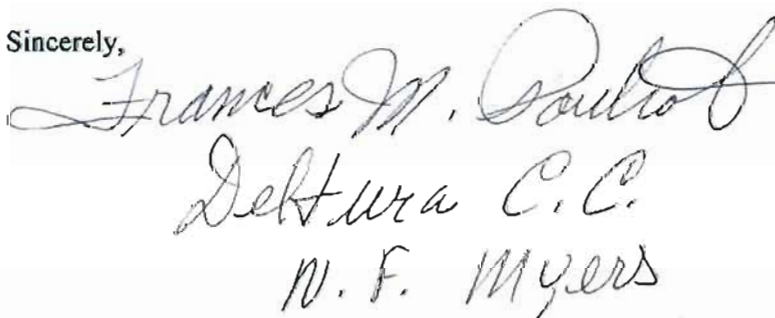 Sincerely,
Frances M. Pouliot
Deltura C.C.
N. F. Myers